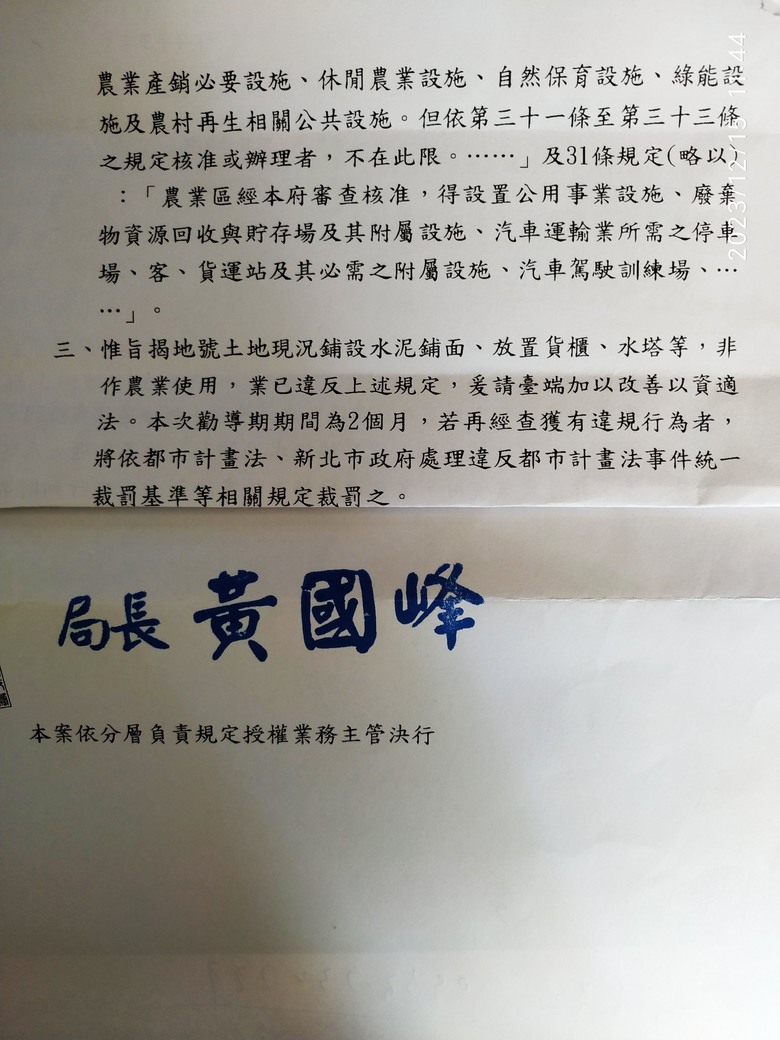 農業產銷必要設施、休閒農業設施、自然保育設施、綠能設
施及農村再生相關公共設施。但依第三十一條至第三十三條
之規定核准或辦理者，不在此限。……」及31條規定(略以)
：「農業區經本府審查核准，得設置公用事業設施、廢棄
物資源回收與貯存場及其附屬設施、汽車運輸業所需之停車
場、客、貨運站及其必需之附屬設施、汽車駕駛訓練場、…
…」。
三、惟旨揭地號土地現況鋪設水泥鋪面、放置貨櫃、水塔等，非
作農業使用，業已違反上述規定，爰請臺端加以改善以資適
法。本次勸導期期間為2個月，若再經查獲有違規行為者，
將依都市計畫法、新北市政府處理違反都市計畫法事件統一
裁罰基準等相關規定裁罰之。
局長 黃國峰
本案依分層負責規定授權業務主管決行